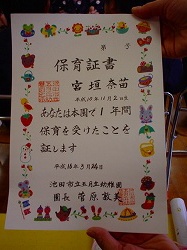 第 号
保育証書
宮垣奈苗
平成10年11月2日生
あなたは本園で1年間
保育を受けたことを
証します
平成16年3月24日
池田市立五月丘幼稚園
園長 菅原敦美